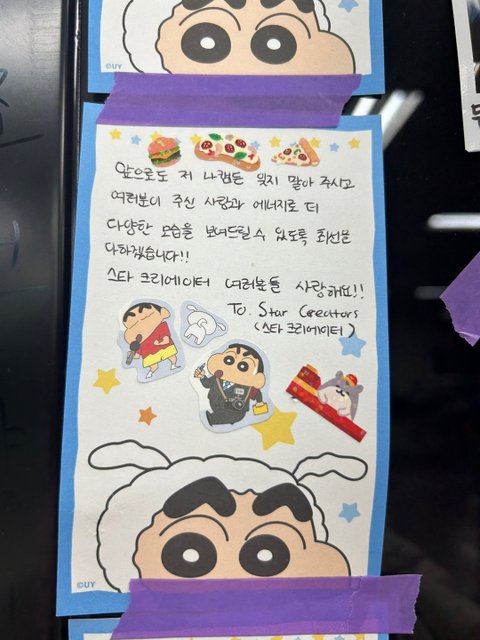 ©UY
앞으로도 저 나캠든 잊지 말아 주시고
여러분이 주신 사랑과 에너지로 더
다양한 모습을 보여드릴 수 있도록 최선을
다하겠습니다!!
스타 크리에이터 여러분들 사랑해요!!
To. Star Creators
(스타 크리에이터)
©UY